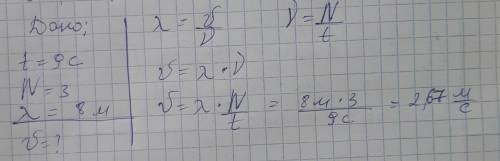 Дано:
t = 9 c
N = 3
λ = 8 м
υ = ?
λ = υ/ν  ν = N/t
υ = λ · ν
υ = λ · N/t = 8 м · 3 / 9 c = 2,67 м/с